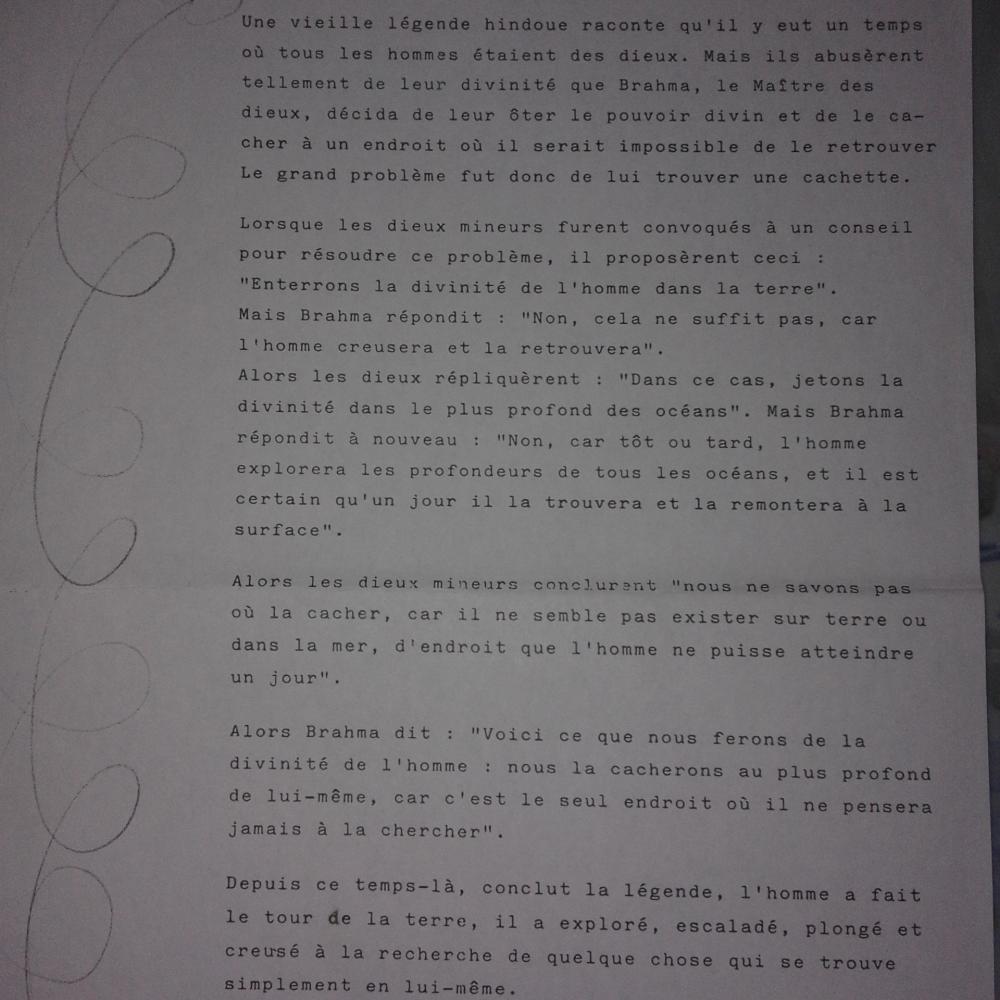 Une vieille légende hindoue raconte qu'il y eut un temps
où tous les hommes étaient des dieux. Mais ils abusèrent
tellement de leur divinité que Brahma, le Maître des
dieux, décida de leur ôter le pouvoir divin et de le ca-
cher à un endroit où il serait impossible de le retrouver
Le grand problème fut donc de lui trouver une cachette.
Lorsque les dieux mineurs furent convoqués à un conseil
pour résoudre ce problème, il proposèrent ceci :
"Enterrons la divinité de l'homme dans la terre".
Mais Brahma répondit : "Non, cela ne suffit pas, car
l'homme creusera et la retrouvera".
Alors les dieux répliquèrent : "Dans ce cas, jetons la
divinité dans le plus profond des océans". Mais Brahma
répondit à nouveau : "Non, car tôt ou tard, l'homme
explorera les profondeurs de tous les océans, et il est
certain qu'un jour il la trouvera et la remontera à la
surface".
Alors les dieux mineurs conclurent "nous ne savons pas
où la cacher, car il ne semble pas exister sur terre ou
dans la mer, d'endroit que l'homme ne puisse atteindre
un jour".
Alors Brahma dit : "Voici ce que nous ferons de la
divinité de l'homme : nous la cacherons au plus profond
de lui-même, car c'est le seul endroit où il ne pensera
jamais à la chercher".
Depuis ce temps-là, conclut la légende, l'homme a fait
le tour de la terre, il a exploré, escaladé, plongé et
creusé à la recherche de quelque chose qui se trouve
simplement en lui-même.